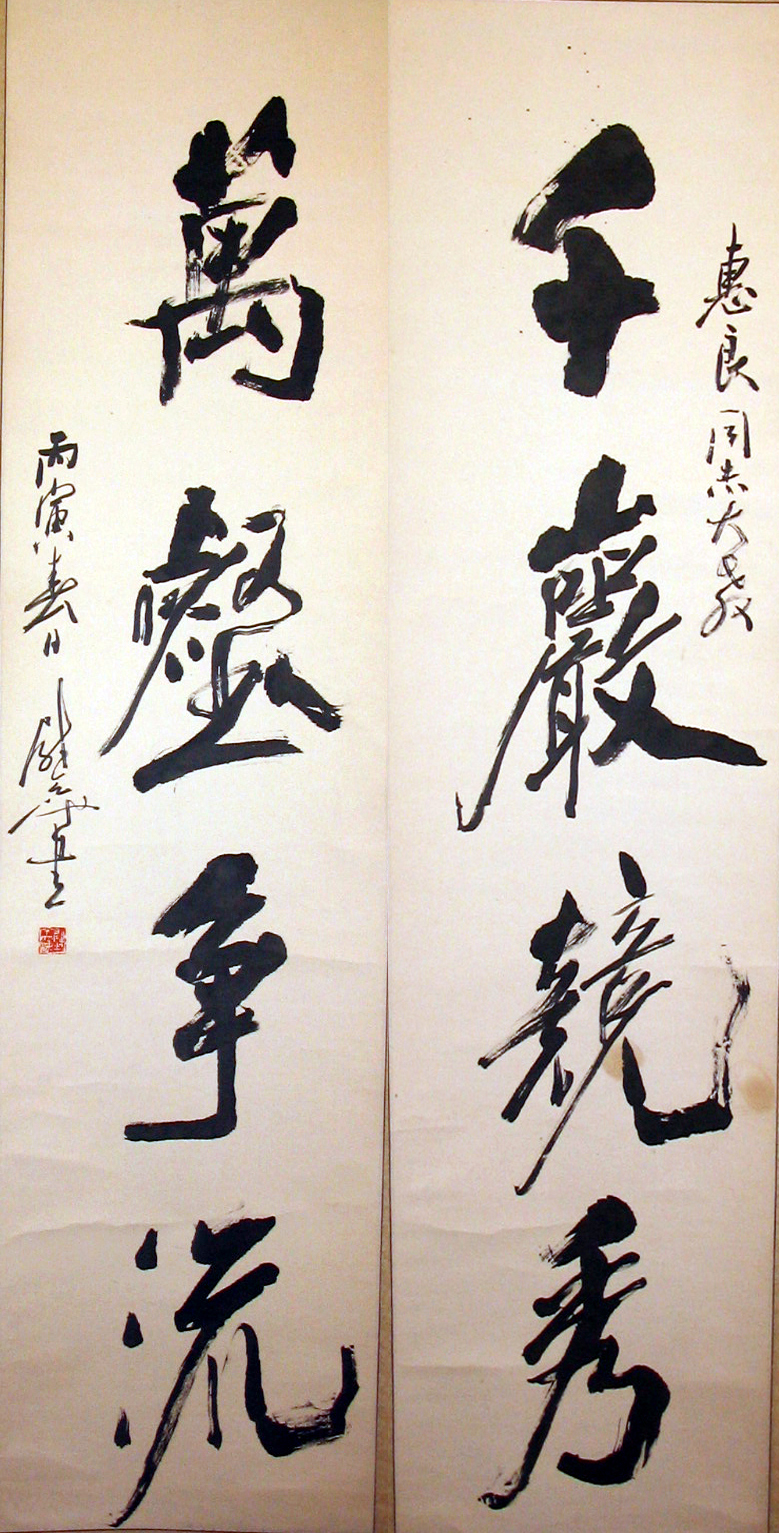 惠良同志大教
千巖競秀
萬壑争流
丙寅春日